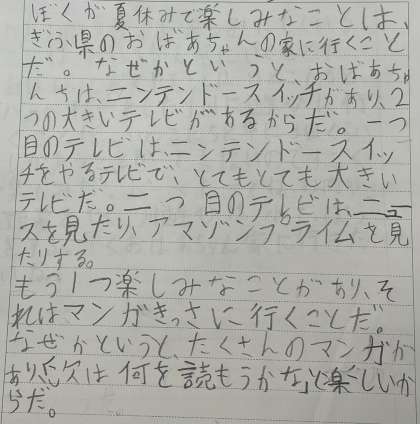 ぼくが夏休みで楽しみなことは、
ぎふ県のおばあちゃんの家に行くこと
だ。なぜかというと、おばあちゃ
んちは、ニンテンドースイッチがあり、2
つの大きいテレビがあるからだ。一つ
目のテレビは、ニンテンドースイッ
チをやるテレビで、とてもとても大きい
テレビだ。二つ目のテレビは、ニュー
スを見たり、アマゾンプライムを見
たりする。
もう1つ楽しみなことがあり、そ
れはマンガきっさに行くことだ。
なぜかというと、たくさんのマンガが
あり、「次は何を読もうかな」と楽しいか
らだ。